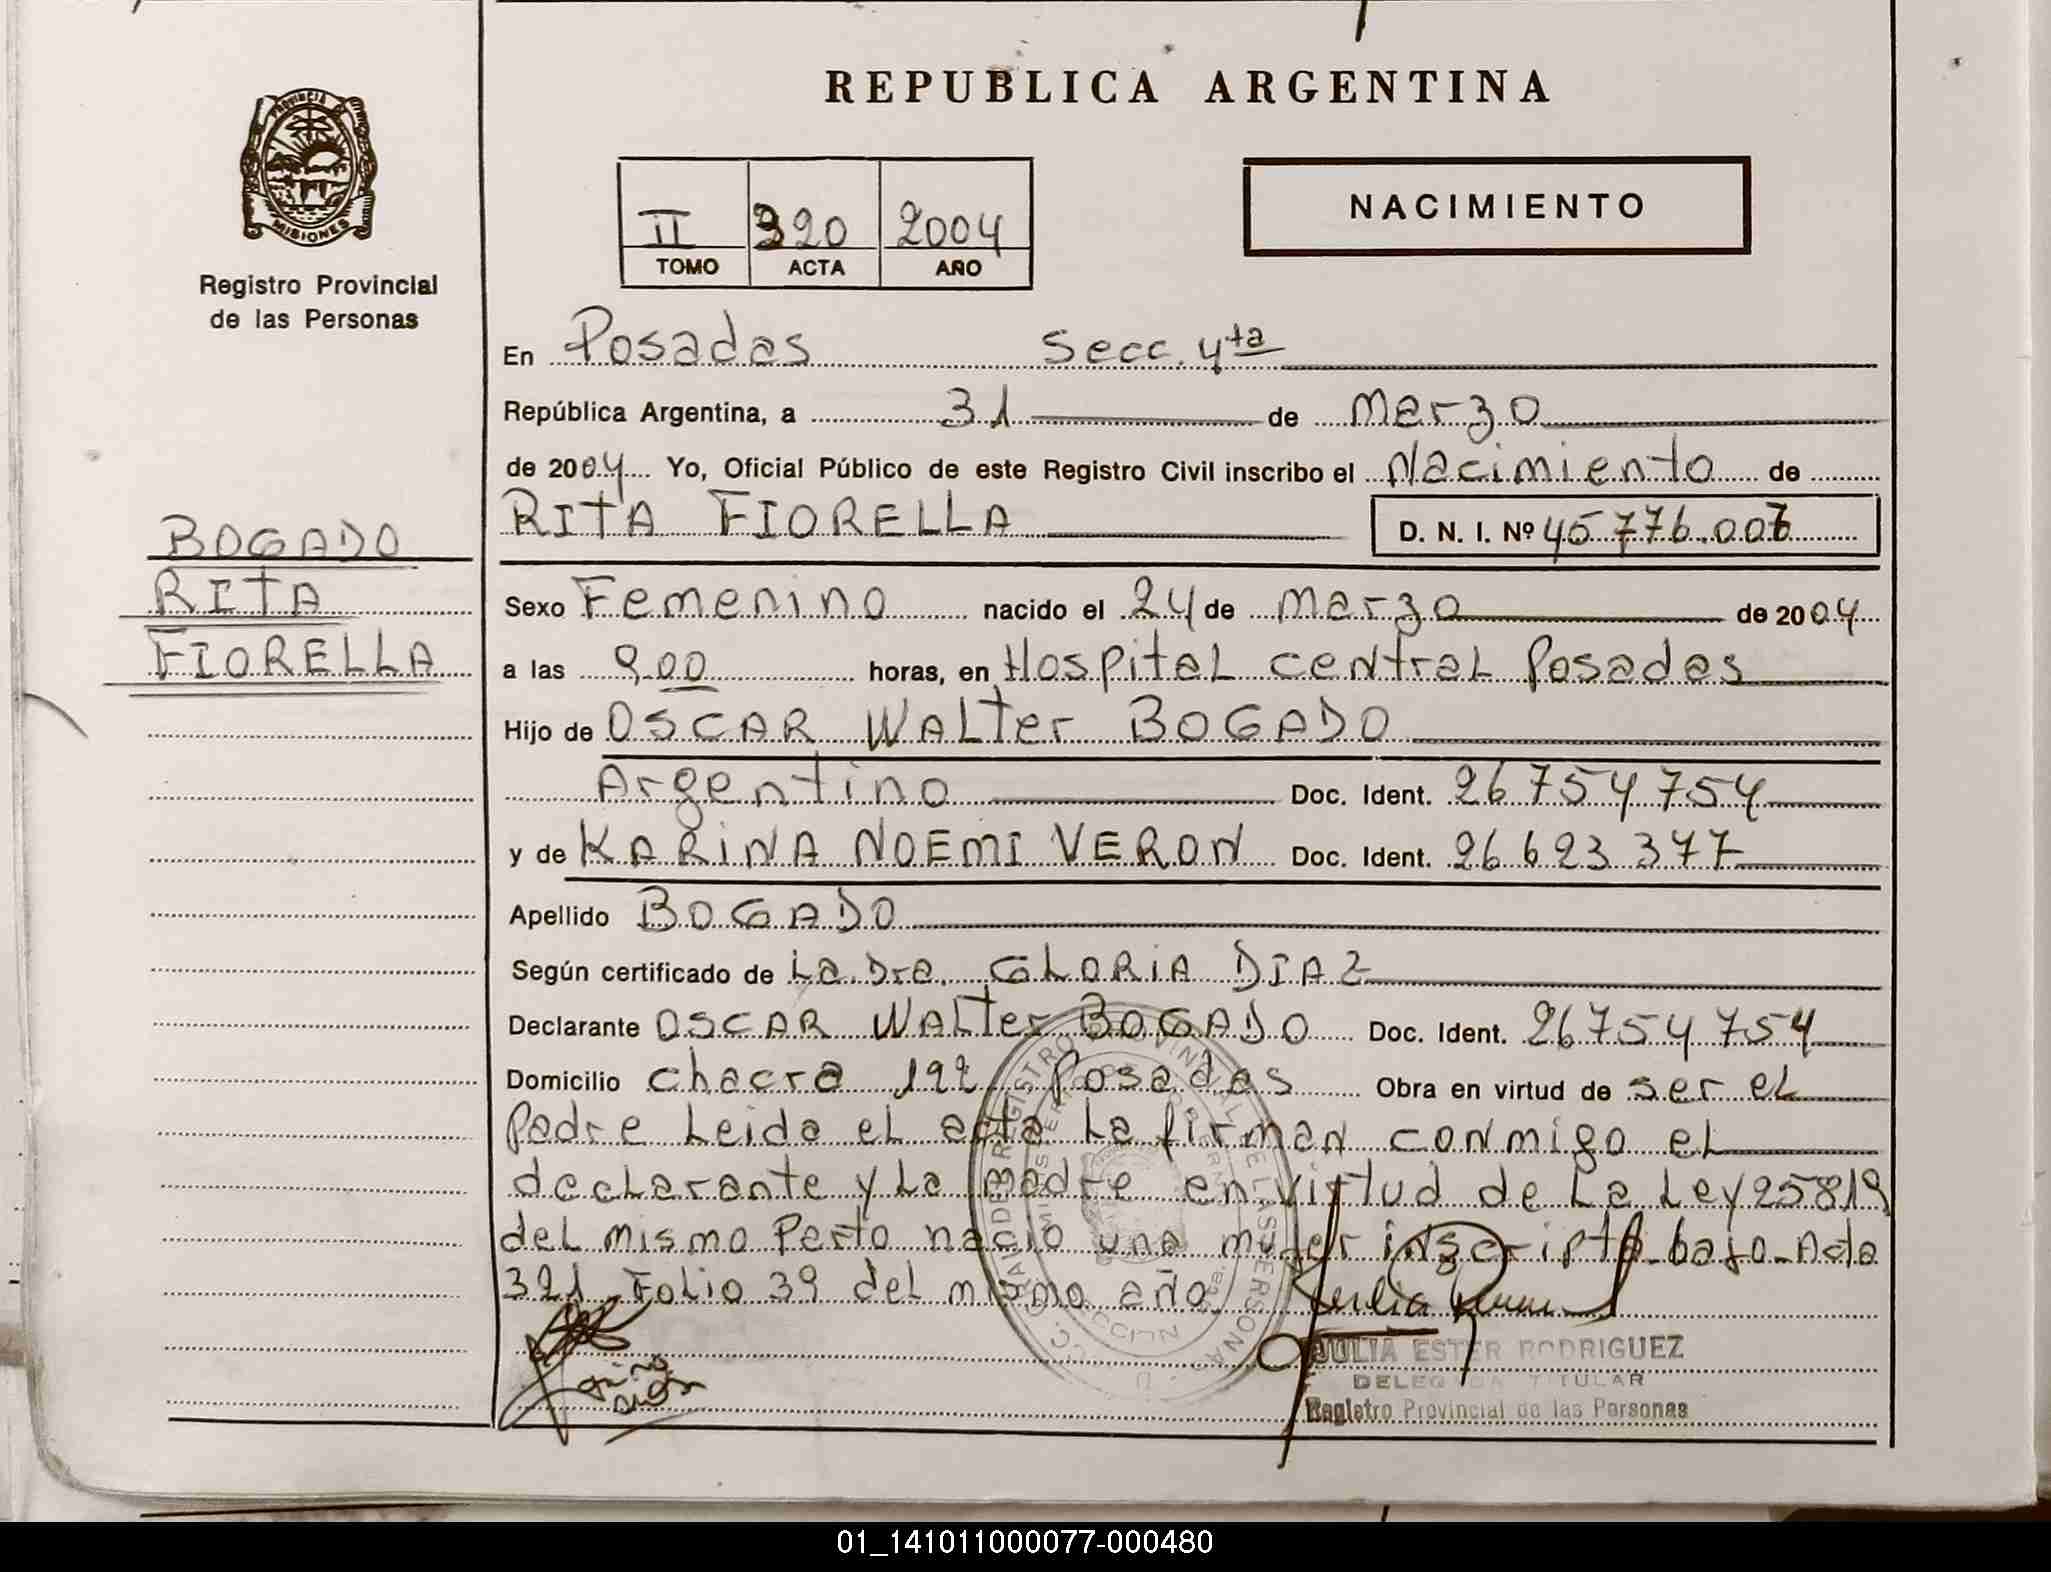 REPUBLICA ARGENTINA
PROVINCIA
MISIONES
Registro Provincial
de las Personas
II 320 2004
TOMO ACTA AÑO
NACIMIENTO
BOGADO
RITA
FIORELLA
En Posadas Secc. 4ta
República Argentina, a 31 de Marzo
de 2004 Yo, Oficial Público de este Registro Civil inscribo el Nacimiento de
RITA FIORELLA D. N. I. Nº 45.776.007
Sexo Femenino nacido el 24 de Marzo de 2004
a las 9.00 horas, en Hospital central Posadas
Hijo de OSCAR WALTer BOGADO
Argentino Doc. Ident. 26 754 754
y de KARINA NOEMI VERON Doc. Ident. 26 623 377
Apellido BOGADO
Según certificado de La Dra. GLORIA DIAZ
Declarante OSCAR WALTer BOGADO Doc. Ident. 26754 754
Domicilio chacra 192 Posadas Obra en virtud de ser el
padre Leida el acta La firman conmigo el
declarante y La madre en virtud de La Ley 25819
del mismo Parto nacio una mujer inscripta bajo Acta
321 Folio 39 del mismo año
JULIA ESTER RODRIGUEZ
DELEGADA TITULAR
Registro Provincial de las Personas
01_141011000077-000480